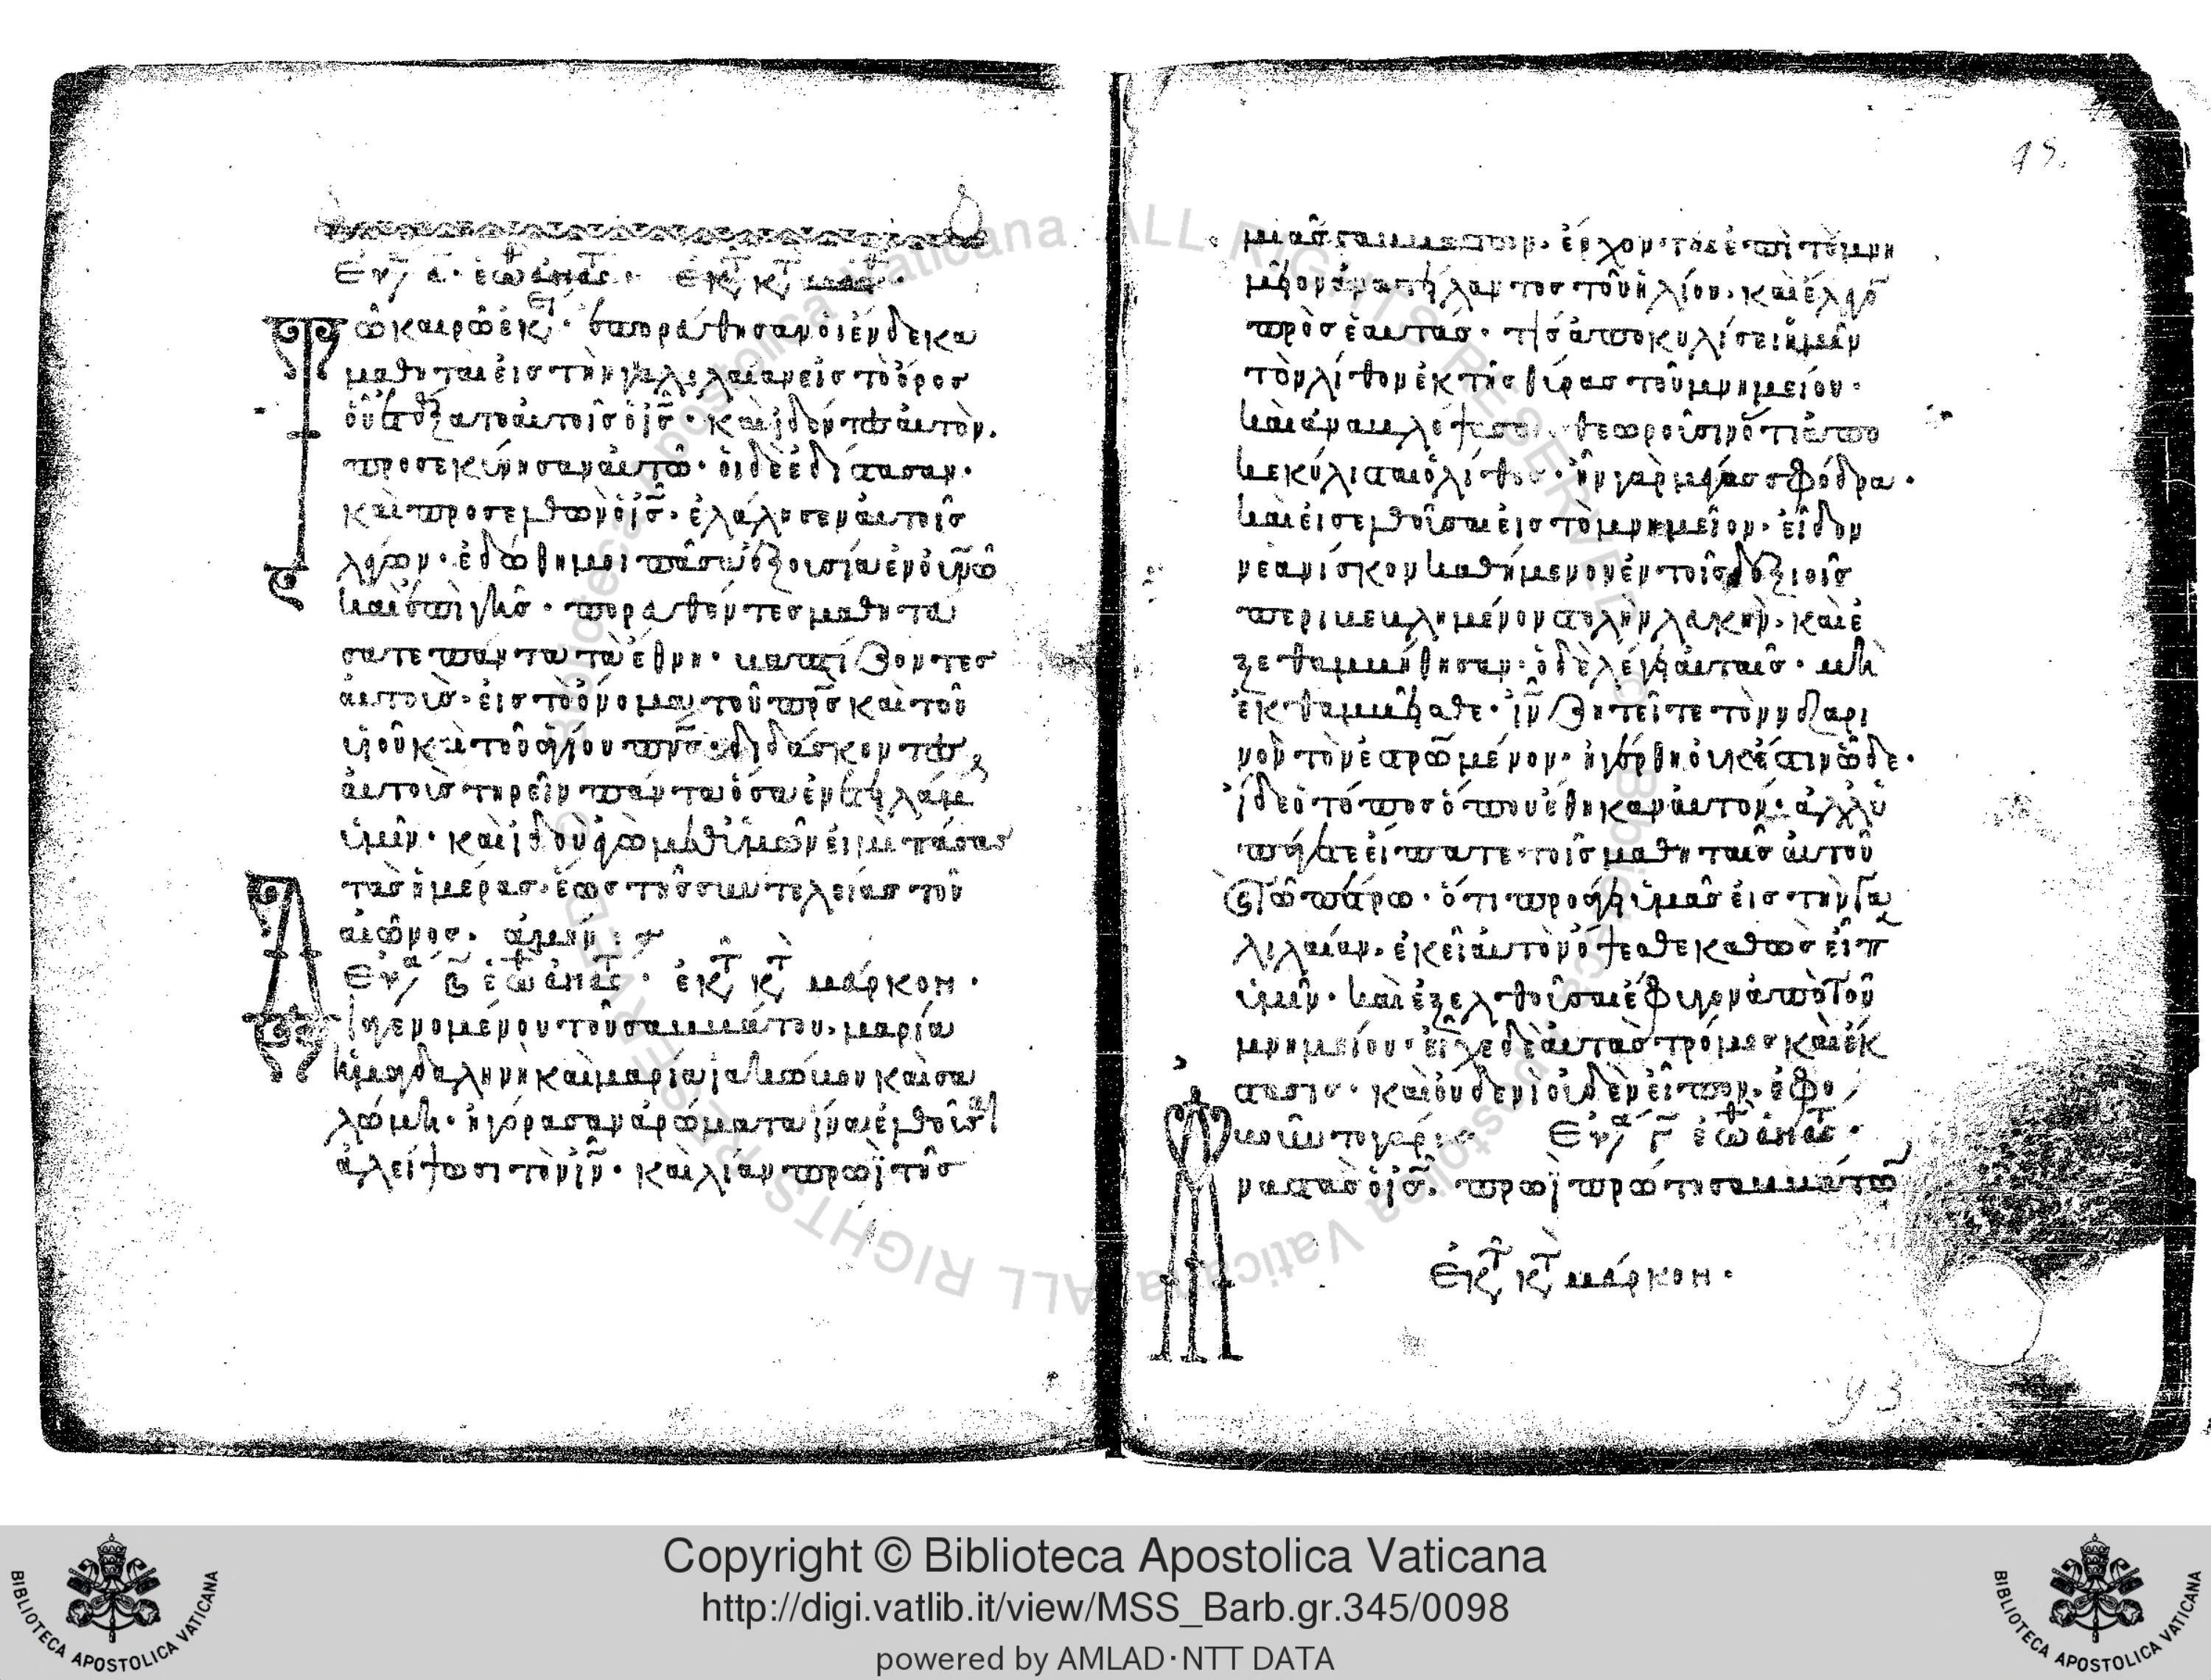 Εὐα α. ἑωθ ἀνασ. ἐκ τ κτ ματθ.
Τῶ καιρῶ ἐκ. ἐπορεύθησαν οἱ ἕνδεκα
μαθηταὶ εἰς τὴν γαλιλαίαν εἰς τὸ ὄρος
οὗ ἐτάξατο αὐτοῖς ὁ ις. καὶ ἰδόντες αὐτὸν.
προσεκύνησαν αὐτῶ. οἱ δὲ ἐδίστασαν.
καὶ προσελθὼν ὁ ις. ἐλάλησεν αὐτοῖς
λέγων. ἐδόθη μοι πᾶσα ἐξουσία ἐν οὐνῶ
καὶ ἐπὶ γῆς. πορευθέντες μαθητεύ
σατε πάντα τὰ ἔθνη. βαπτίζοντες
αὐτοὺς. εἰς τὸ ὄνομα τοῦ πρς καὶ τοῦ
υἱοῦ καὶ τοῦ ἁγίου πνς. διδάσκοντες
αὐτοὺς τηρεῖν πάντα ὅσα ἐνετειλάμ
ὑμῖν. καὶ ἰδοὺ ἐγὼ μεθ ὑμῶν εἰμι πάσας
τὰς ἡμέρας. ἕως τῆς συντελείας τοῦ
αἰῶνος. ἀμήν:
Εὐα β ἑωθ ἀνασ. ἐκ τ κτ μάρκον.
Διαγενομένου τοῦ σαββάτου. μαρία
ἡ μαγδαληνὴ καὶ μαρία ἰακώβου καὶ σα
λώμη. ἠγόρασαν ἀρώματα ἵνα ἐλθοῦσαι
ἀλείψωσι τὸν ιν. καὶ λίαν πρωῒ τῆς
95.
μιᾶς σαββάτων. ἔρχονται ἐπὶ τὸ μνη
μεῖον ἀνατείλαντος τοῦ ἡλίου. καὶ ἔλεγον
πρὸς ἑαυτάς. τίς ἀποκυλίσει ἡμῖν
τὸν λίθον ἐκ τῆς θύρας τοῦ μνημείου.
καὶ ἀναβλέψασαι. θεωροῦσιν ὅτι ἀπο
κεκύλισται ὁ λίθος. ἦν γὰρ μέγας σφόδρα.
καὶ εἰσελθοῦσαι εἰς τὸ μνημεῖον. εἶδον
νεανίσκον καθήμενον ἐν τοῖς δεξιοῖς
περιβεβλημένον στολὴν λευκήν. καὶ ἐ
ξεθαμβήθησαν. ὁ δὲ λέγει αὐταῖς. μὴ
ἐκθαμβεῖσθε. ιν ζητεῖτε τὸν ναζαρη
νὸν τὸν ἐσταυρωμένον. ἠγέρθη. οὐκ ἔστιν ὧδε.
ἴδε ὁ τόπος ὅπου ἔθηκαν αὐτόν. ἀλλ ὑ
πάγετε εἴπατε τοῖς μαθηταῖς αὐτοῦ
καὶ τῶ πέτρω. ὅτι προάγει ὑμᾶς εἰς τὴν γα
λιλαίαν. ἐκεῖ αὐτὸν ὄψεσθε καθὼς εἶπ
ὑμῖν. καὶ ἐξελθοῦσαι ἔφυγον ἀπὸ τοῦ
μνημείου. εἶχε δὲ αὐτὰς τρόμος καὶ ἔκ
στασις. καὶ οὐδενὶ οὐδὲν εἶπον. ἐφο
βοῦντο γάρ. Εὐα γ ἑωθ ἀνασ.
Ἀναστὰς ὁ ις. πρωῒ πρώτη σαββάτου
ἐκ τ κτ μάρκον.
93
Copyright © Biblioteca Apostolica Vaticana
http://digi.vatlib.it/view/MSS_Barb.gr.345/0098
powered by AMLAD·NTT DATA
BIBLIOTECA APOSTOLICA VATICANA
BIBLIOTECA APOSTOLICA VATICANA